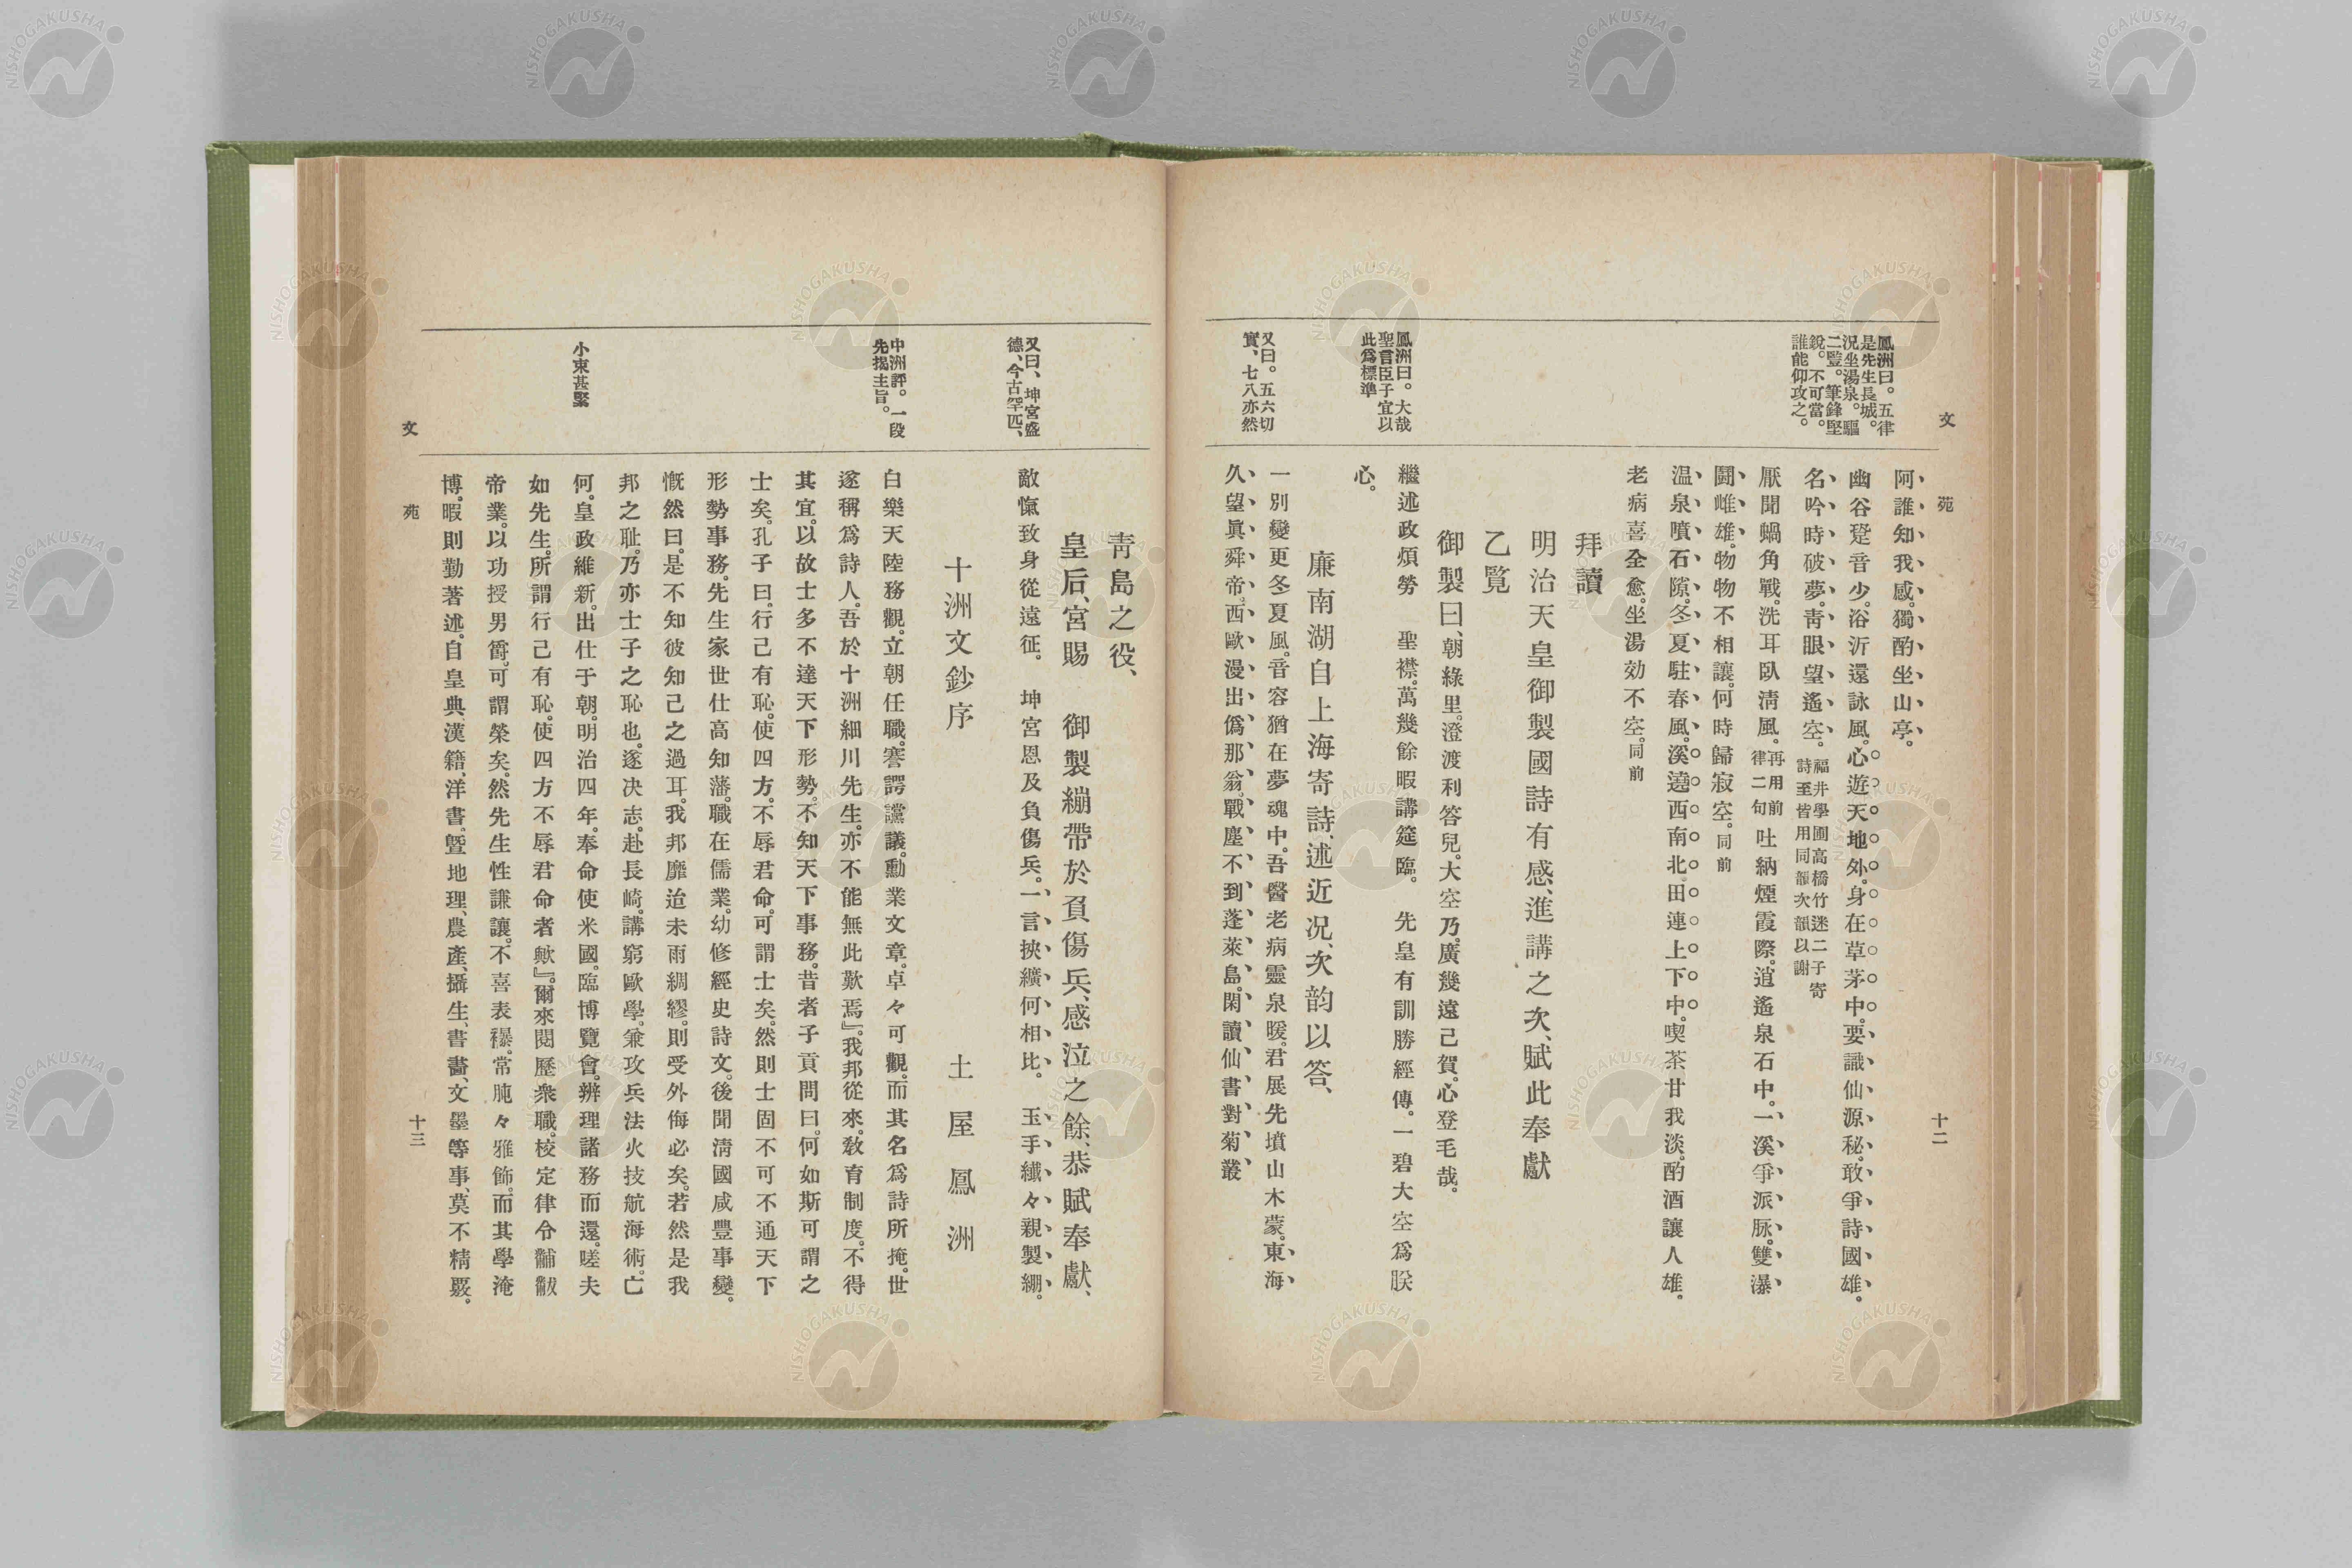 文苑
十二
鳳洲曰。五律
是先生長城。
況坐湯泉。驅
二豎。筆鋒堅
銳。不可當。
誰能仰攻之。
阿誰知我感。獨酌坐山亭。
幽谷跫音少。浴沂還詠風。心遊天地外。身在草茅中。要識仙源秘。敢爭詩國雄。
名吟時破夢。靑眼望遙空。福井學圃高橋竹迷二子寄
詩至皆用同韻次韻以謝
厭聞蝸角戰。洗耳臥淸風。再用前
律二句吐納煙霞際。逍遙泉石中。一溪爭派脈。雙瀑
鬪雌雄。物物不相讓。何時歸寂空。同前
温泉噴石隙。冬夏駐春風。溪遶西南北。田連上下中。喫茶甘我淡。酌酒讓人雄。
老病喜全愈。坐湯効不空。同前
拜讀
明治天皇御製國詩有感、進講之次、賦此奉獻
乙覽
御製曰、朝綠里。澄渡利答兒。大空乃。廣幾遠己賀。心登毛哉。
鳳洲曰。大哉
聖言臣子宜以
此爲標準
繼述政煩勞 聖襟。萬幾餘暇講筵臨。 先皇有訓勝經傳。一碧大空爲朕
心。
廉南湖自上海寄詩、述近況、次韵以答、
又曰。五六切
實、七八亦然
一別變更冬夏風。音容猶在夢魂中。吾醫老病靈泉暖。君展先墳山木蒙。東海
久望眞舜帝。西歐漫出僞那翁。戰塵不到蓬萊島。閑讀仙書對菊叢
靑島之役、
皇后宮賜 御製繃帶於負傷兵、感泣之餘、恭賦奉獻、
又曰、坤宮盛
德、今古罕匹、
敵愾致身從遠征。 坤宮恩及負傷兵。一言挾纊何相比。 玉手纖々親製繃。
十洲文鈔序 土屋鳳洲
中洲評。一段
先揭主旨。
白樂天陸務觀。立朝任職。謇諤讜議。勳業文章。卓々可觀。而其名爲詩所掩。世
遂稱爲詩人。吾於十洲細川先生。亦不能無此歎焉』。我邦從來。敎育制度。不得
其宜。以故士多不達天下形勢。不知天下事務。昔者子貢問曰。何如斯可謂之
士矣。孔子曰。行己有恥。使四方。不辱君命。可謂士矣。然則士固不可不通天下
形勢事務。先生家世仕高知藩。職在儒業。幼修經史詩文。後聞淸國咸豐事變。
慨然曰。是不知彼知己之過耳。我邦靡迨未雨綢繆。則受外侮必矣。若然是我
邦之耻。乃亦士子之恥也。遂决志。赴長崎。講窮歐學。兼攻兵法火技航海術。亡
小束甚緊
何。皇政維新。出仕于朝。明治四年。奉命使米國。臨博覽會。辨理諸務而還。嗟夫
如先生。所謂行己有恥。使四方不辱君命者歟』。爾來閱歷衆職。棱定律令黼黻
帝業。以功授男爵。可謂榮矣。然先生性謙讓。不喜表襮。常肫々雅飾。而其學淹
博。暇則勤著述。自皇典、漢籍、洋書。曁地理、農產、攝生、書畵、文墨等事、莫不精覈。
文苑
十三